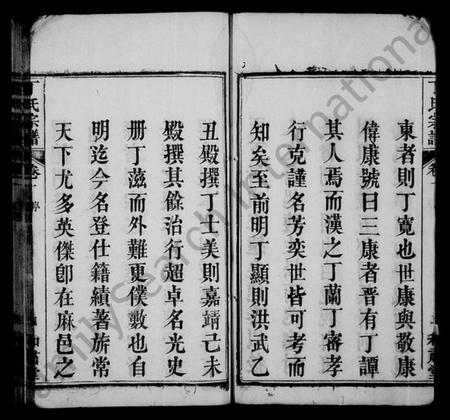 東者則丁寬也世康與敬康
偉康號曰三康者晋有丁譚
其人焉而漢之丁蘭丁審孝
行克謹名芳奕世皆可考而
知矣至前明丁顯則洪武乙
丑殿撰丁士美則嘉靖己未
殿撰其餘治行超卓名光史
册丁茲而外難更僕數也自
明迄今名登仕籍績著族常
天下尤多英傑卽在麻邑之
丁氏宗譜
卷
序
FamilySearch International